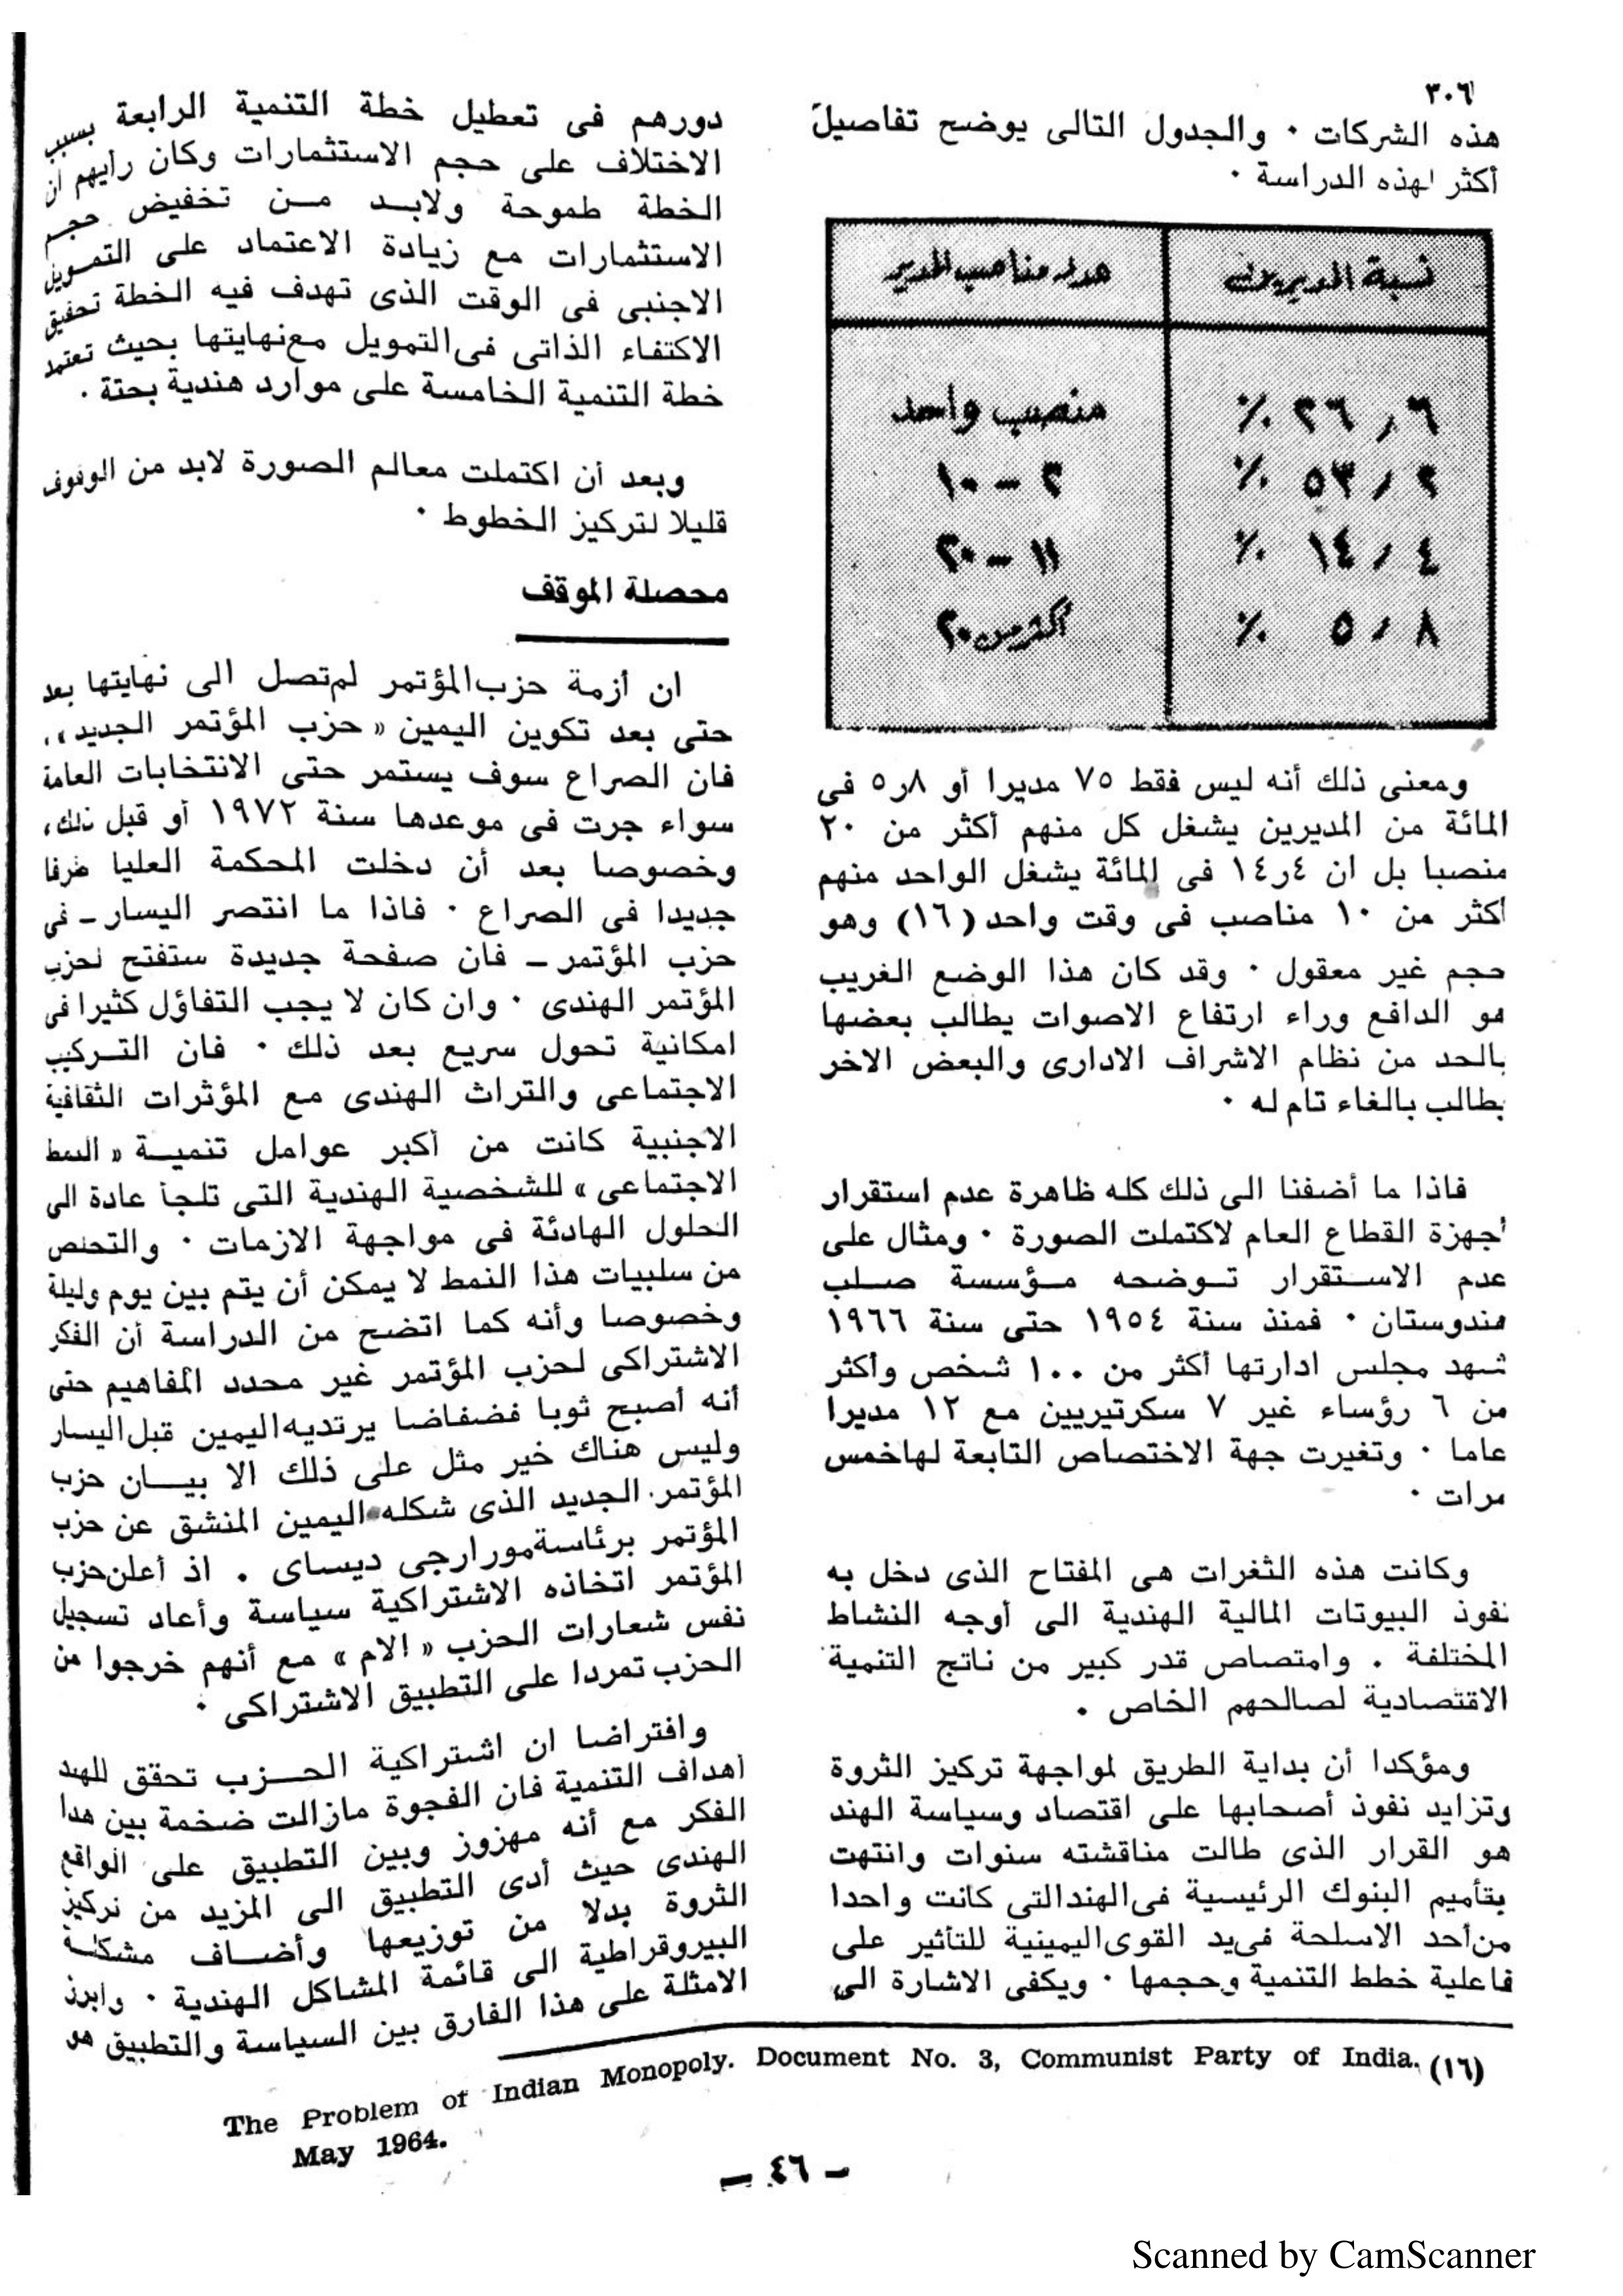 ٣٠٦
هذه الشركات ٠ والجدول التالى يوضح تفاصيل
أكثر لهذه الدراسة ٠
نسبة المديرين عدد مناصب المدير
٢٦٫٦ ٪ منصب واحد
٥٣٫٢ ٪ ٢ - ١٠
١٤٫٤ ٪ ١١ - ٢٠
٥٫٨ ٪ أكثر من ٢٠
ومعنى ذلك أنه ليس فقط ٧٥ مديرا أو ٨ر٥ فى
المائة من المديرين يشغل كل منهم أكثر من ٢٠
منصبا بل ان ٤ر١٤ فى المائة يشغل الواحد منهم
أكثر من ١٠ مناصب فى وقت واحد (١٦) وهو
حجم غير معقول ٠ وقد كان هذا الوضع الغريب
هو الدافع وراء ارتفاع الاصوات يطالب بعضها
بالحد من نظام الاشراف الادارى والبعض الاخر
يطالب بالغاء تام له ٠
فاذا ما أضفنا الى ذلك كله ظاهرة عدم استقرار
أجهزة القطاع العام لاكتملت الصورة ٠ ومثال على
عدم الاستقرار توضحه مؤسسة صلب
هندوستان ٠ فمنذ سنة ١٩٥٤ حتى سنة ١٩٦٦
شهد مجلس ادارتها أكثر من ١٠٠ شخص وأكثر
من ٦ رؤساء غير ٧ سكرتيريين مع ١٢ مديرا
عاما ٠ وتغيرت جهة الاختصاص التابعة لها خمس
مرات ٠
وكانت هذه الثغرات هى المفتاح الذى دخل به
نفوذ البيوتات المالية الهندية الى أوجه النشاط
المختلفة . وامتصاص قدر كبير من ناتج التنمية
الاقتصادية لصالحهم الخاص .
ومؤكدا أن بداية الطريق لمواجهة تركيز الثروة
وتزايد نفوذ أصحابها على اقتصاد وسياسة الهند
هو القرار الذى طالت مناقشته سنوات وانتهت
بتأميم البنوك الرئيسية فى الهند التى كانت واحدا
من أحد الاسلحة فى يد القوى اليمينية للتأثير على
فاعلية خطط التنمية وحجمها ٠ ويكفى الاشارة الى
دورهم فى تعطيل خطة التنمية الرابعة بسبب
الاختلاف على حجم الاستثمارات وكان رأيهم ان
الخطة طموحة ولابد من تخفيض حجم
الاستثمارات مع زيادة الاعتماد على التمويل
الاجنبى فى الوقت الذى تهدف فيه الخطة تحقيق
الاكتفاء الذاتى فى التمويل مع نهايتها بحيث تعتمد
خطة التنمية الخامسة على موارد هندية بحتة ٠
وبعد أن اكتملت معالم الصورة لابد من الوقوف
قليلا لتركيز الخطوط ٠
محصلة الموقف
ان أزمة حزب المؤتمر لم تصل الى نهايتها بعد
حتى بعد تكوين اليمين « حزب المؤتمر الجديد »،
فان الصراع سوف يستمر حتى الانتخابات العامة
سواء جرت فى موعدها سنة ١٩٧٢ أو قبل ذلك،
وخصوصا بعد أن دخلت المحكمة العليا طرفا
جديدا فى الصراع ٠ فاذا ما انتصر اليسار ـ فى
حزب المؤتمر ـ فان صفحة جديدة ستفتح لحزب
المؤتمر الهندى ٠ وان كان لا يجب التفاؤل كثيرا فى
امكانية تحول سريع بعد ذلك ٠ فان التركيب
الاجتماعى والتراث الهندى مع المؤثرات الثقافية
الاجنبية كانت من أكبر عوامل تنمية « النمط
الاجتماعى » للشخصية الهندية التى تلجأ عادة الى
الحلول الهادئة فى مواجهة الازمات ٠ والتخلص
من سلبيات هذا النمط لا يمكن أن يتم بين يوم وليلة
وخصوصا وأنه كما اتضح من الدراسة أن الفكر
الاشتراكى لحزب المؤتمر غير محدد المفاهيم حتى
أنه أصبح ثوبا فضفاضا يرتديه اليمين قبل اليسار
وليس هناك خير مثل على ذلك الا بيان حزب
المؤتمر الجديد الذى شكله اليمين المنشق عن حزب
المؤتمر برئاسة مورارجى ديساى . اذ أعلن حزب
المؤتمر اتخاذه الاشتراكية سياسة وأعاد تسجيل
نفس شعارات الحزب « الام » مع أنهم خرجوا من
الحزب تمردا على التطبيق الاشتراكى ٠
وافتراضا ان اشتراكية الحزب تحقق للهند
أهداف التنمية فان الفجوة مازالت ضخمة بين هذا
الفكر مع أنه مهزوز وبين التطبيق على الواقع
الهندى حيث أدى التطبيق الى المزيد من تركيز
الثروة بدلا من توزيعها وأضاف مشكلة
البيروقراطية الى قائمة المشاكل الهندية ٠ وابرز
الامثلة على هذا الفارق بين السياسة والتطبيق هو
(١٦) The Problem of Indian Monopoly. Document No. 3, Communist Party of India.
May 1964.
— ٤٦ —
Scanned by CamScanner